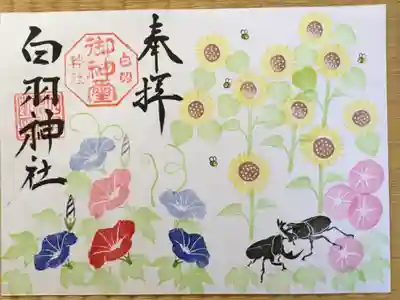 奉拝
白羽
神社
御神霊
白羽神社